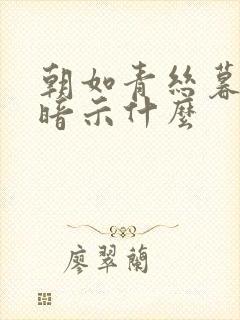 朝如青絲暮
暗示什麼
廖翠蘭